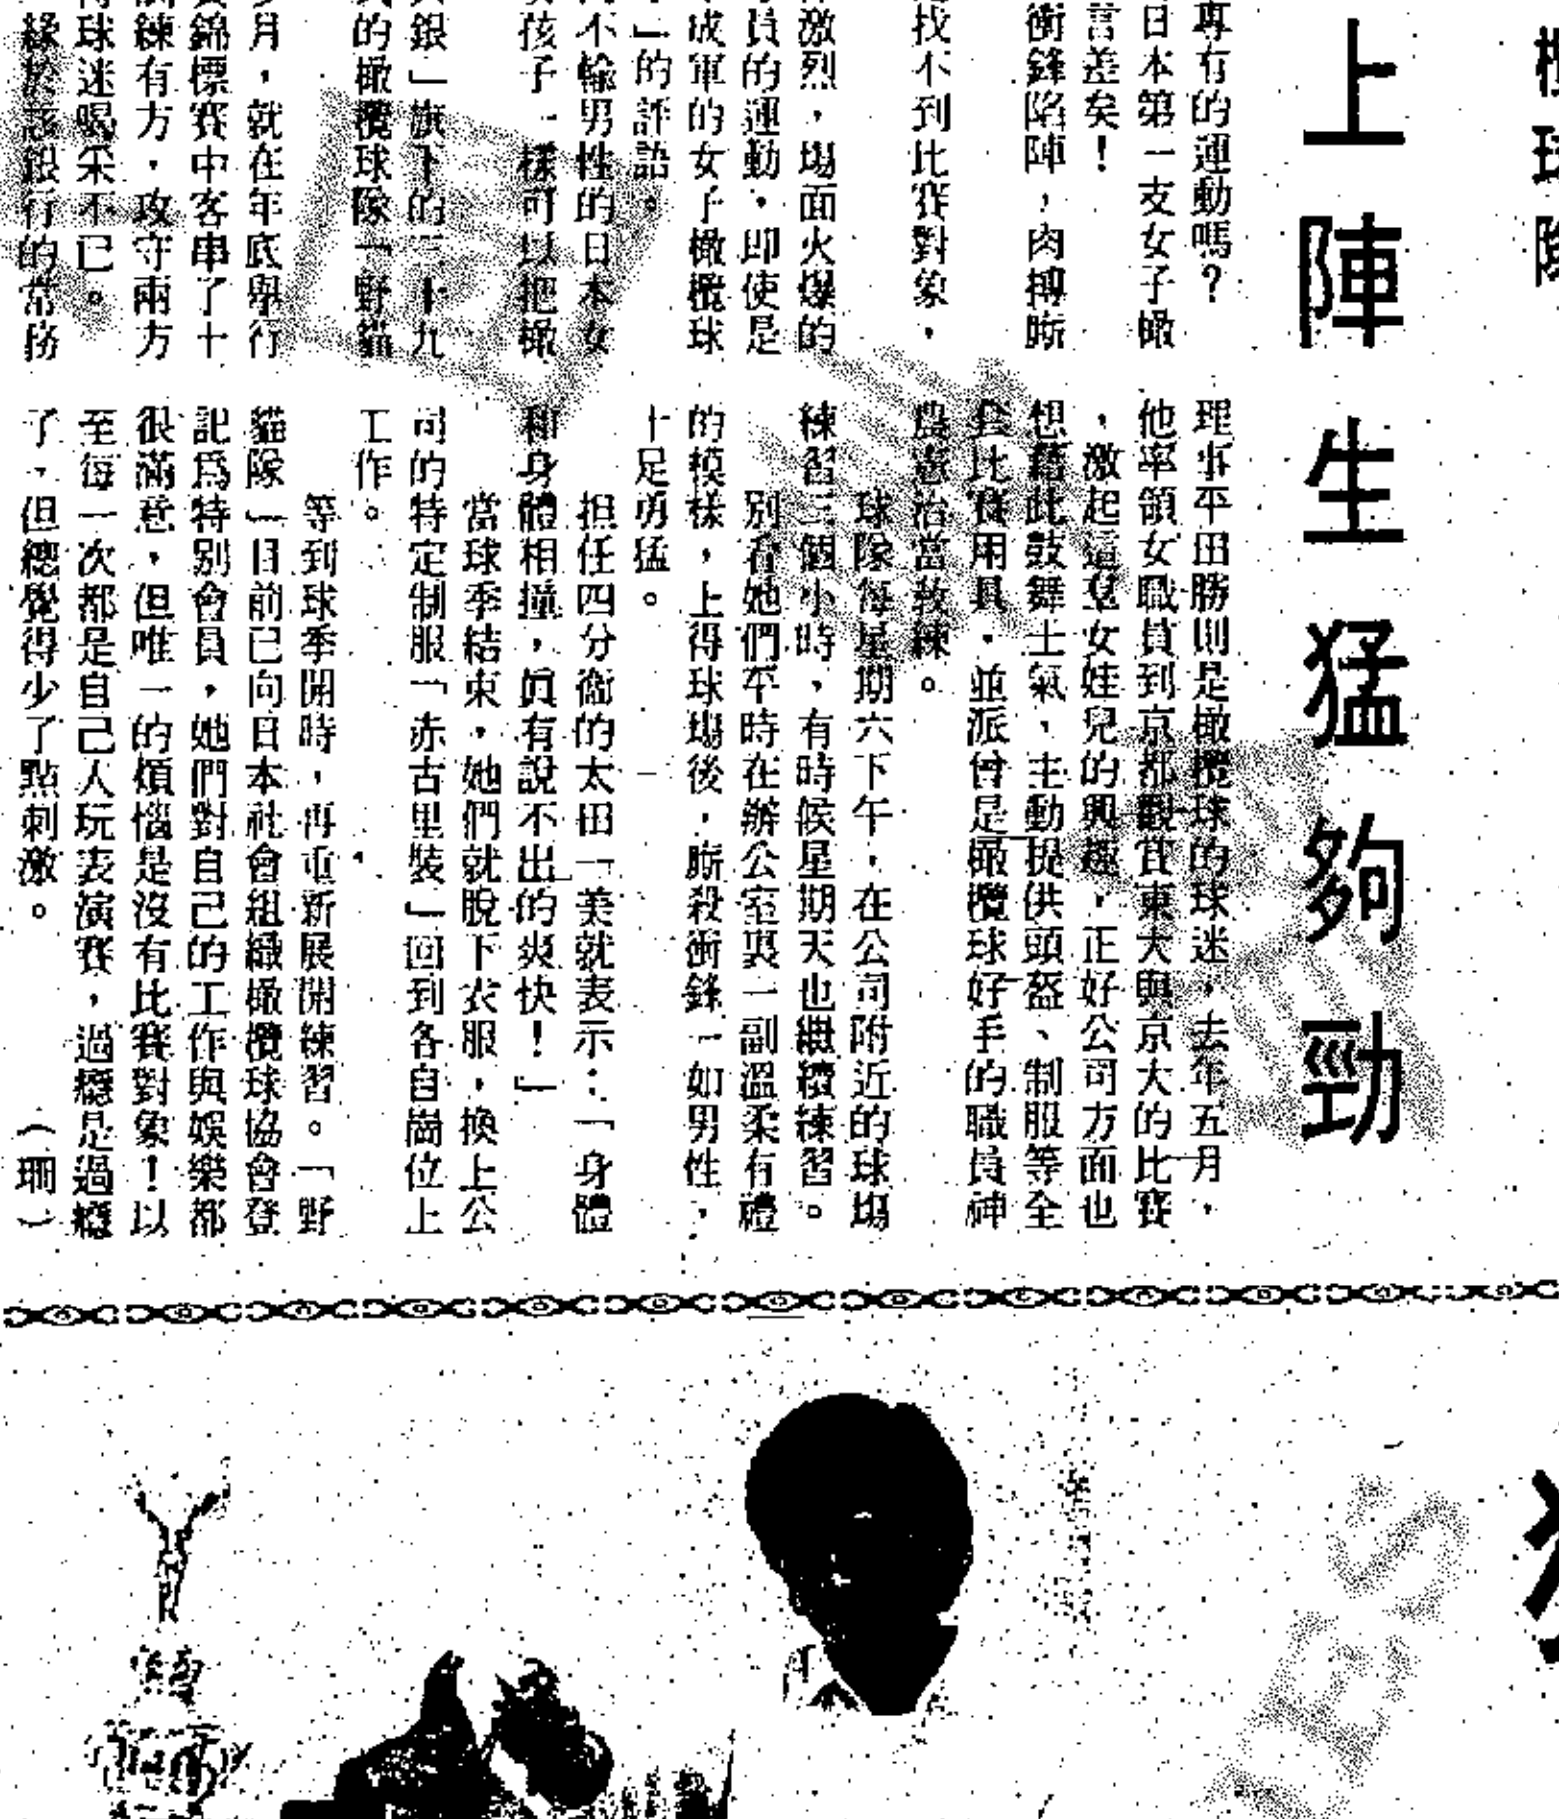 上陣生猛夠勁
專有的運動嗎？
日本第一支女子橄
言差矣！
衝鋒陷陣，肉搏廝
找不到比賽對象，
激烈，場面火爆的
員的運動，即使是
成軍的女子橄欖球
」的評語。
不輸男性的日本女
孩子一樣可以把橄
銀」旗下的三十九
的橄欖球隊「野貓
月，就在年底舉行
錦標賽中客串了十
練有方，攻守兩方
球迷喝采不已。
緣於該銀行的常務
理事平田勝則是橄欖球的球迷，去年五月，
他率領女職員到京都觀賞東大與京大的比賽
，激起這羣女娃兒的興趣，正好公司方面也
想藉此鼓舞士氣，主動提供頭盔、制服等全
套比賽用具，並派曾是橄欖球好手的職員神
農憲治當教練。
球隊每星期六下午，在公司附近的球場
練習三個小時，有時候星期天也繼續練習。
別看她們平時在辦公室裏一副溫柔有禮
的模樣，上得球場後，廝殺衝鋒一如男性，
十足勇猛。
担任四分衞的太田一美就表示：「身體
和身體相撞，眞有說不出的爽快！」
當球季結束，她們就脫下衣服，換上公
司的特定制服「赤古里裝」回到各自崗位上
工作。
等到球季開時，再重新展開練習。「野
貓隊」目前已向日本社會組織橄欖球協會登
記爲特別會員，她們對自己的工作與娛樂都
很滿意，但唯一的煩惱是沒有比賽對象！以
至每一次都是自己人玩表演賽，過癮是過癮
了，但總覺得少了點刺激。（珊）